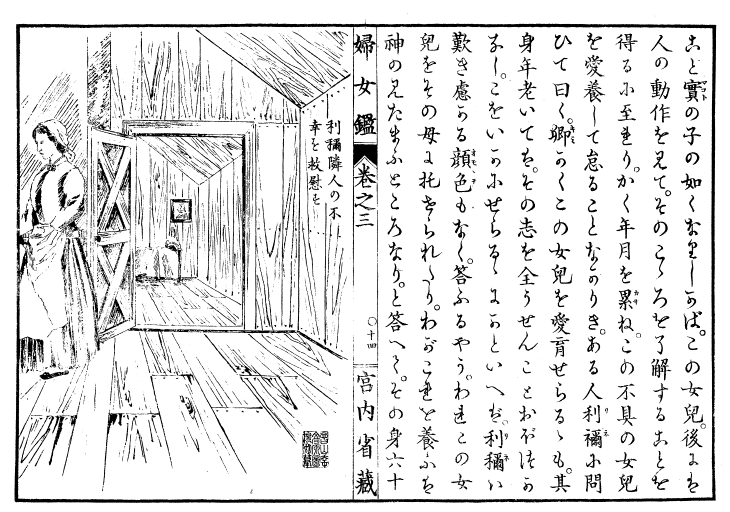 こと實の子の如くなりしかば。この女兒。後には
人の動作を見て。そのこゝろを了解することを
得るに至れり。かく年月を累ね。この不具の女兒
を愛養して怠ることなかりき。ある人利禰に問
ひて曰く。卿かくこの女兒を愛育せらるゝも。其
身年老いては。その志を全うせんことおぼつか
なし。こをいかにせらるゝにかといへば。利禰は
歎き慮る顔色もなく。答ふるやう。われこの女
兒をその母に托せられたり。わがこれを養ふは
神の見たまふところなり。と答へて。その身六十
婦女鑑 卷之三 〇十四 宮内省藏
利禰隣人の不
幸を救慰す